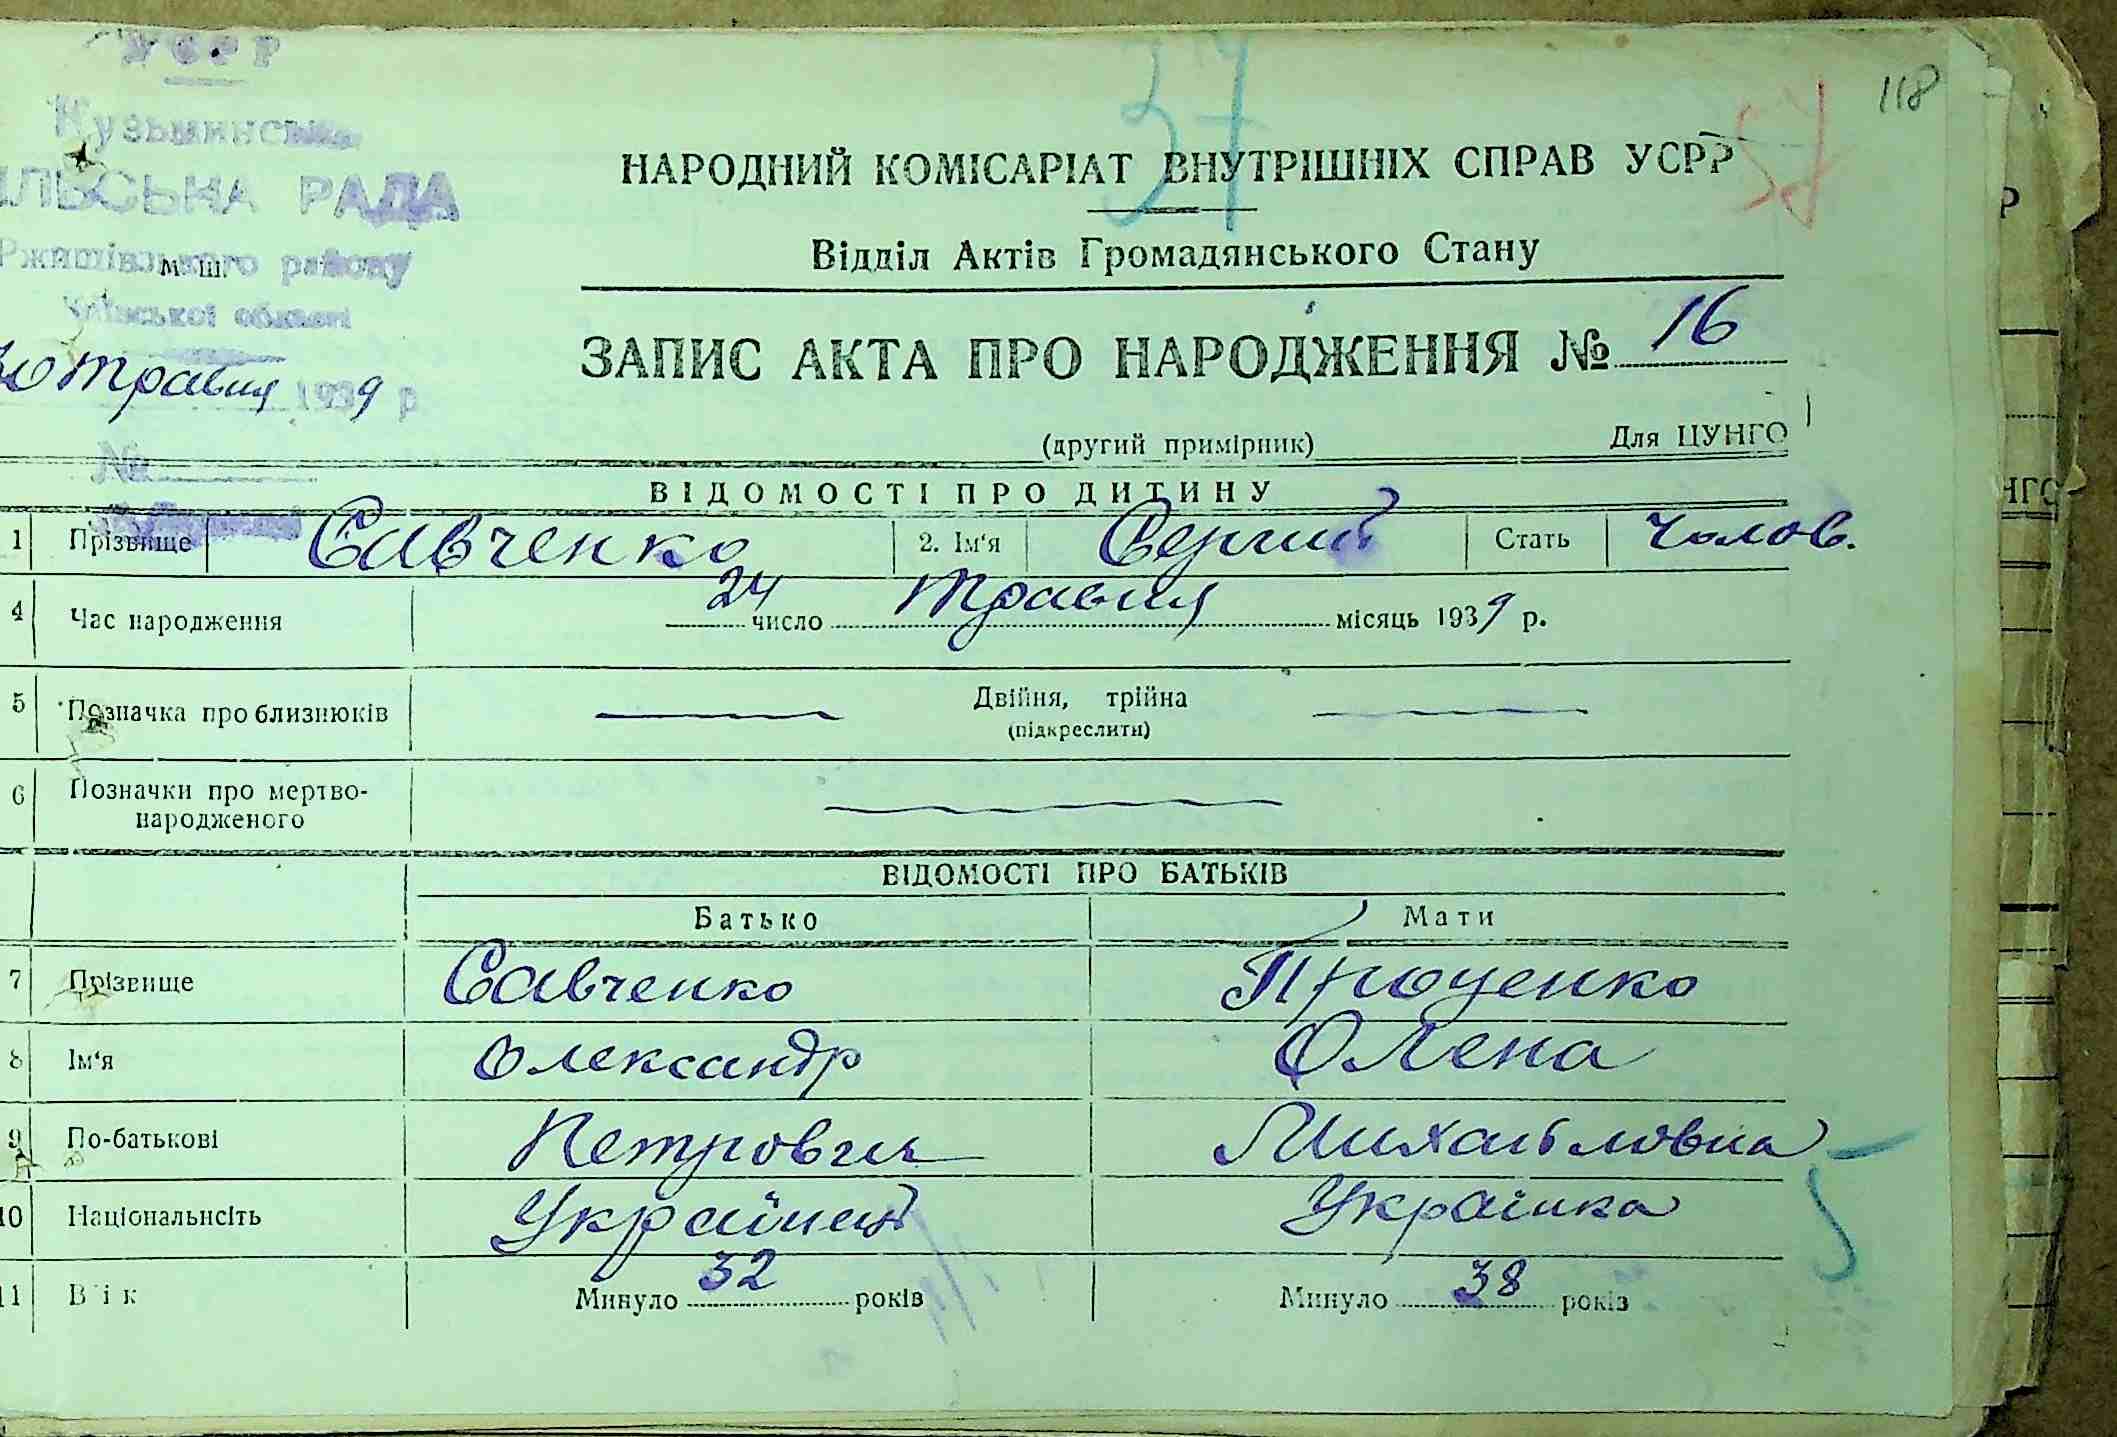 УСРР
118
37
57
Кузьминська
ІЛЬСЬКА РАДА
Ржищівського району
м. ш.
Київської області
30 травня 1939 р
№
НАРОДНИЙ КОМІСАРІАТ ВНУТРІШНІХ СПРАВ УСРР
Відділ Актів Громадянського Стану
ЗАПИС АКТА ПРО НАРОДЖЕННЯ № 16
(другий примірник) Для ЦУНГО
ВІДОМОСТІ ПРО ДИТИНУ
1 Прізвище Савченко 2. Ім'я Сергий Стать Чолов.
4 Час народження 24 число травня місяць 1939 р.
5 Позначка про близнюків Двійня, трійна
(підкреслити)
6 Позначки про мертво-
народженого
ВІДОМОСТІ ПРО БАТЬКІВ
Батько Мати
7 Прізвище Савченко Проценко
8 Ім'я Олександр Олена
9 По-батькові Петрович Михайловна
10 Національнсіть Українец Українка
11 Вік Минуло 32 років Минуло 38 років
5